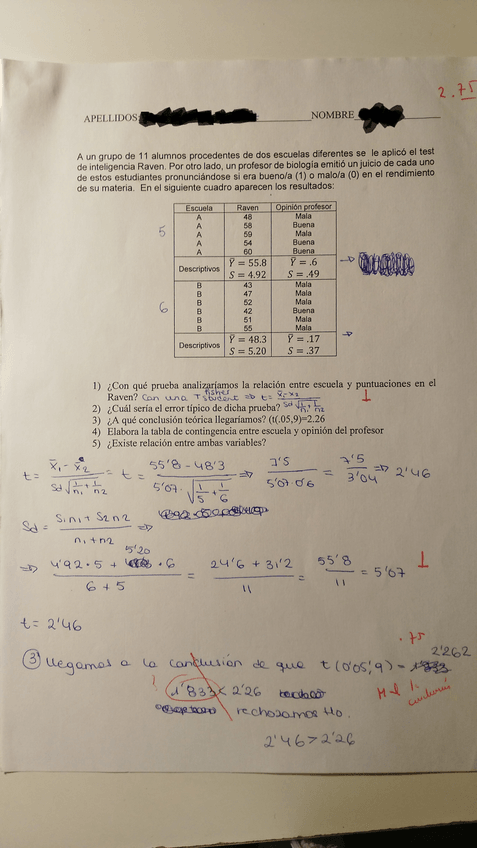 2.75
APELLIDOS: NOMBRE
A un grupo de 11 alumnos procedentes de dos escuelas diferentes se le aplicó el test
de inteligencia Raven. Por otro lado, un profesor de biología emitió un juicio de cada uno
de estos estudiantes pronunciándose si era bueno/a (1) o malo/a (0) en el rendimiento
de su materia. En el siguiente cuadro aparecen los resultados:
Escuela Raven Opinión profesor
A 48 Mala
A 58 Buena
5 A 59 Mala
A 54 Buena
A 60 Buena
Descriptivos Ȳ = 55.8 Ȳ = .6
S = 4.92 S = .49
B 43 Mala
B 47 Mala
6 B 52 Mala
B 42 Buena
B 51 Mala
B 55 Mala
Descriptivos Ȳ = 48.3 Ȳ = .17
S = 5.20 S = .37
1) ¿Con qué prueba analizaríamos la relación entre escuela y puntuaciones en el
Raven? Con una T student fisher ⇒ t = x̄₁-x̄₂ / Sd√(1/n₁+1/n₂) 1
2) ¿Cuál sería el error típico de dicha prueba?
3) ¿A qué conclusión teórica llegaríamos? (t(.05,9)=2.26
4) Elabora la tabla de contingencia entre escuela y opinión del profesor
5) ¿Existe relación entre ambas variables?
t = x̄₁ - x̄₂ / Sd√(1/n₁+1/n₂) = t = 55'8 - 48'3 / 5'07·√(1/5+1/6) ⇒ 7'5 / 5'07·0'6 = 7'5 / 3'04 ⇒ 2'46
Sd = S₁n₁ + S₂n₂ / n₁+n₂ ⇒
⇒ 4'92·5 + 5'20·6 / 6+5 = 24'6 + 31'2 / 11 = 55'8 / 11 = 5'07 1
t = 2'46
.75
③ llegamos a la conclusión de que t(0'05,9) = 2'262
! 1'833 < 2'26
rechazamos Ho.
2'46 > 2'26